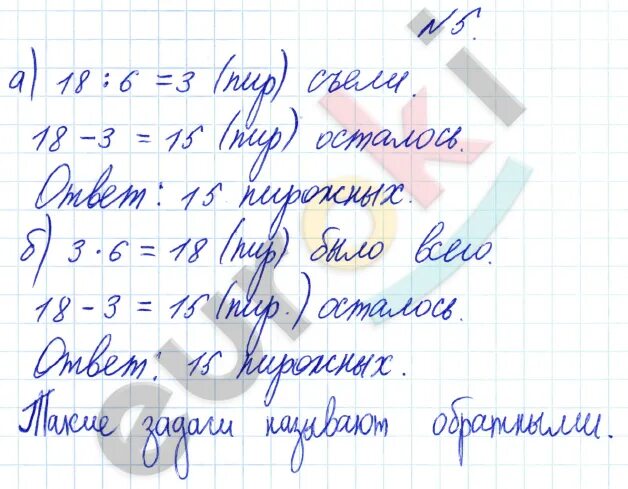 №5.
а) 18 : 6 = 3 (пир) съели.
18 - 3 = 15 (пир) осталось.
Ответ: 15 пирожных.
б) 3 · 6 = 18 (пир) было всего.
18 - 3 = 15 (пир.) осталось.
Ответ: 15 пирожных.
Такие задачи называют обратными.
euroki